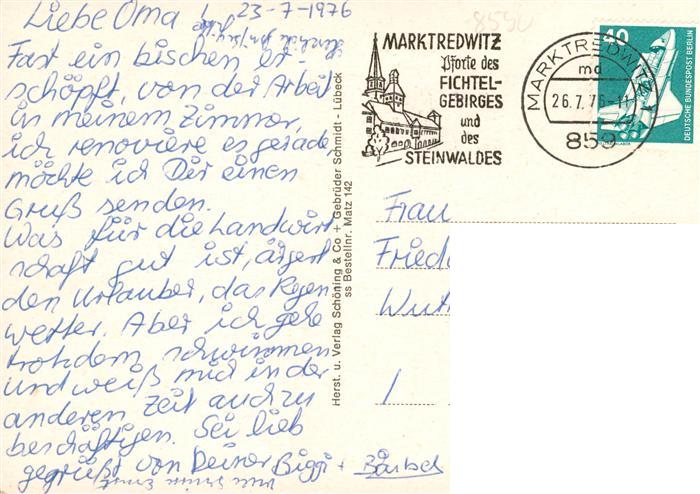 Liebe Oma! 23-7-1976
Fast ein bischen er-
schöpft, von der Arbeit
in meinem Zimmer,
ich renoviere es gerade
möchte ich Dir einen
Gruß senden.
Was für die Landwirt
schaft gut ist, ärgert
den Urlauber, das Regen
wetter. Aber ich gehe
trotzdem schwimmen
und weiß mich in der
anderen Zeit auch zu
beschäftigen. Sei lieb
gegrüßt von Deiner Biggi + Bärbel
Herst. u. Verlag Schöning & Co + Gebrüder Schmidt - Lübeck
ss Bestellnr. Matz 142
MARKTREDWITZ
Pforte des
FICHTEL-
GEBIRGES
und
des
STEINWALDES
MARKTREDWITZ 1
md
26.7.76-11
859
40
DEUTSCHE BUNDESPOST BERLIN
Frau
Fried
Wu
1